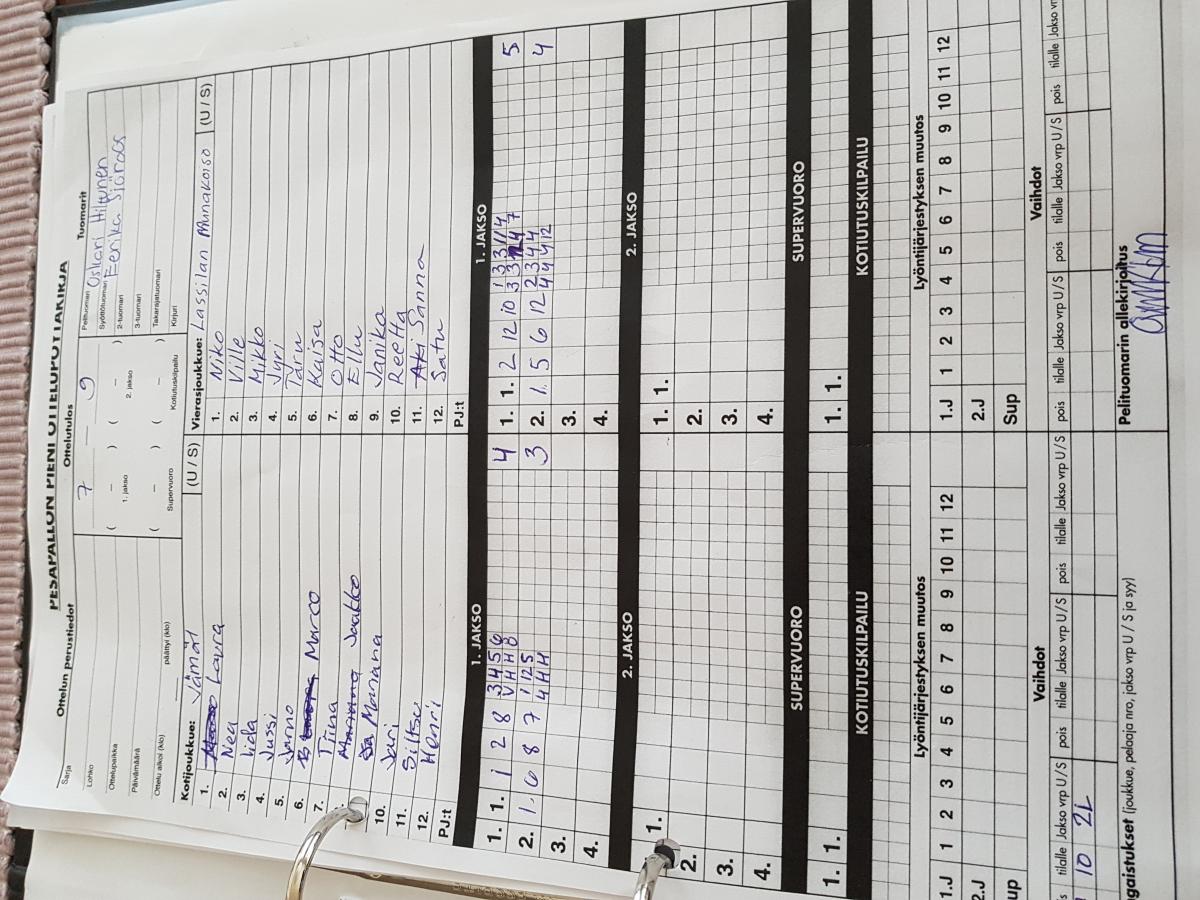 PESÄPALLON PIENI OTTELUPÖYTÄKIRJA
Ottelun perustiedot
Sarja
Lohko
Ottelupaikka
Päivämäärä
Ottelu alkoi (klo) päättyi (klo)
Ottelutulos
7 – 9
( – ) ( – )
1. jakso 2. jakso
( – ) ( – )
Supervuoro Kotiutuskilpailu
Tuomarit
Pelituomari Oskari Hiltunen
Syöttötuomari Eerika Sjöroos
2-tuomari
3-tuomari
Takarajatuomari
Kirjuri
Kotijoukkue: Jämät (U / S)
1. Laura
2. Nea
3. Iida
4. Jussi
5. Jarno
6. Marco
7. Tiina
Jaakko
Mannana
10. Jari
11. Siltsu
12. Henri
PJ:t
Vierasjoukkue: Lassilan Munakoiso (U / S)
1. Niko
2. Ville
3. Mikko
4. Jyri
5. Taru
6. Kaisa
7. Otto
8. Ellu
9. Janika
10. Reetta
11. Sanna
12. Satu
PJ:t
1. JAKSO
1. 1. 1 2 8 3 4 5 6 4
V H H 8
2. 1. 6 8 7 1 2 5 3
4 H H
3.
4.
1. JAKSO
1. 1. 2 12 10 5
2. 1. 5 6 12 2 3 4 4 4
4 4 4 12
3.
4.
2. JAKSO
1.
2.
3.
4.
2. JAKSO
1. 1.
2.
3.
4.
SUPERVUORO
1. 1.
SUPERVUORO
1. 1.
KOTIUTUSKILPAILU
KOTIUTUSKILPAILU
Lyöntijärjestyksen muutos
1.J 1 2 3 4 5 6 7 8 9 10 11 12
2.J
up
Lyöntijärjestyksen muutos
1.J 1 2 3 4 5 6 7 8 9 10 11 12
2.J
Sup
Vaihdot
s tilalle Jakso vrp U/S pois tilalle Jakso vrp U/S pois tilalle Jakso vrp U/S
10 2L
Vaihdot
pois tilalle Jakso vrp U/S pois tilalle Jakso vrp U/S pois tilalle Jakso vr
ngaistukset (joukkue, pelaaja nro, jakso vrp U / S ja syy)
Pelituomarin allekirjoitus